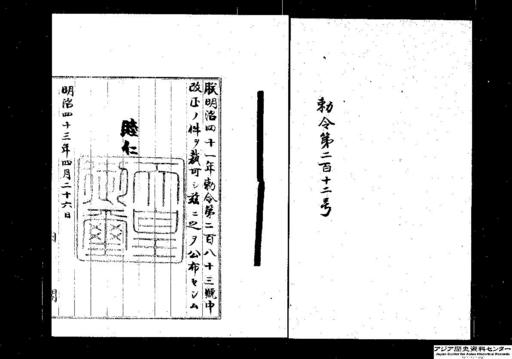 勅令第二百十二号
朕明治四十一年勅令第二百八十三號中
改正ノ件ヲ裁可シ茲ニ之ヲ公布セシム
睦仁
天皇
御璽
明治四十三年四月二十六日
内閣
アジア歴史資料センター
Japan Center for Asian Historical Records